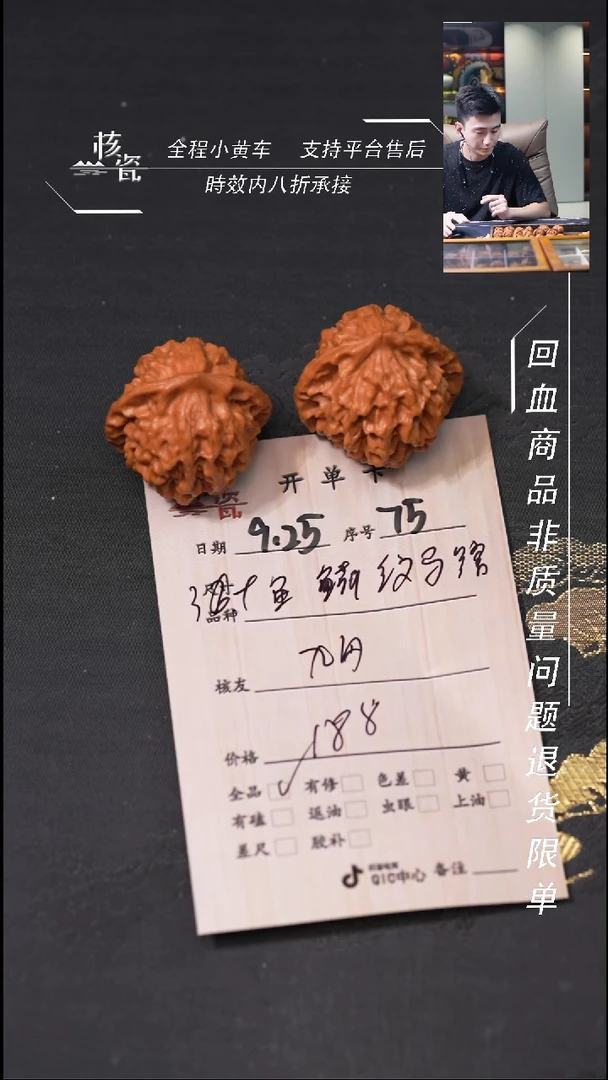 核瓷
全程小黄车 支持平台售后
時效内八折承接
回血商品非质量问题退货限单
瓷
开单卡
日期 9.25 序号 75
品种
鱼鳞纹
核友 九月
价格 188
全品 ✓ 有修 色差 黄
有磕 返油 虫眼 上油
差尺 胶补
QIC中心 备注